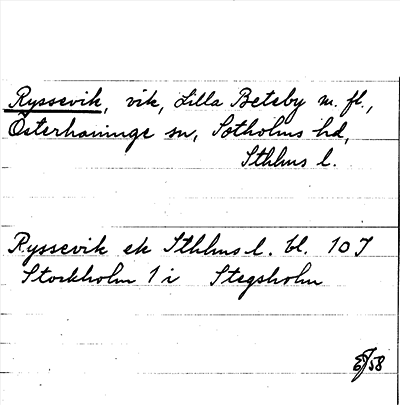 Ryssevik, vik, Lilla Beteby m. fl.,
Österhaninge sn, Sotholms hd,
Sthlms l.
Ryssevik ek Sthlms l. bl. 10 J
Stockholm 1 i Stegsholm
58